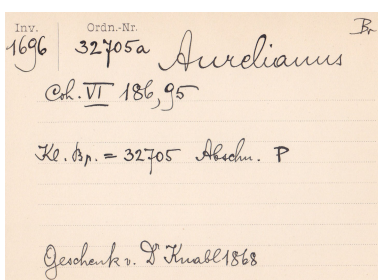 Inv. Ordn.-Nr. Br
1696 32705a Aurelianus
Coh. VI 186,95
Kl. Br. = 32705 Abschn. P
Geschenk v. Dr Knabl 1868